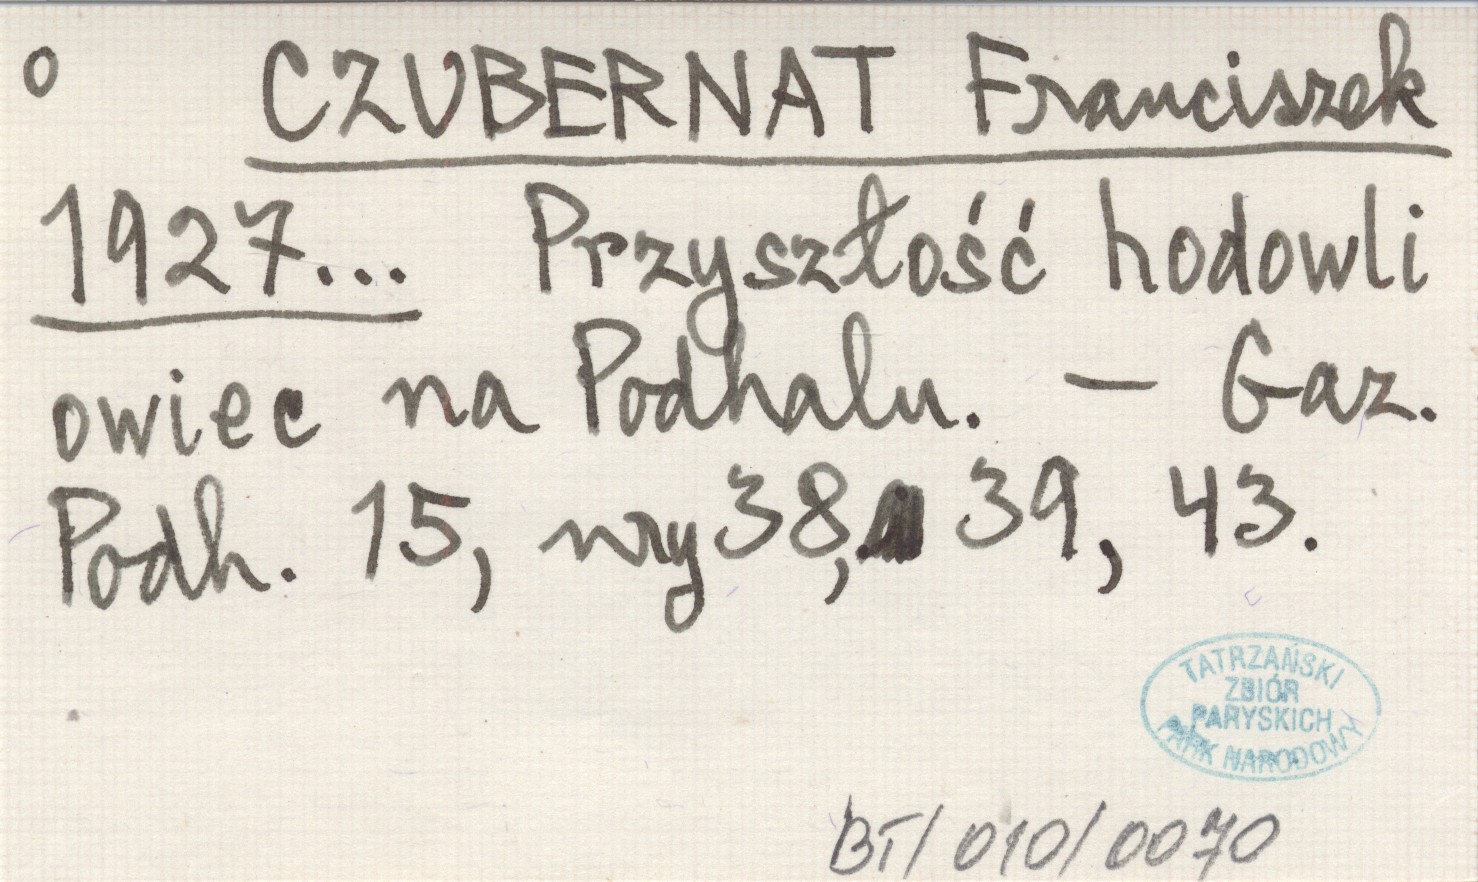 o CZUBERNAT Franciszek
1927... Przyszłość hodowli
owiec na Podhalu. — Gaz.
Podh. 15, nry 38, 39, 43.
TATRZAŃSKI
ZBIÓR
PARYSKICH
PARK NARODOWY
BT/010/0070